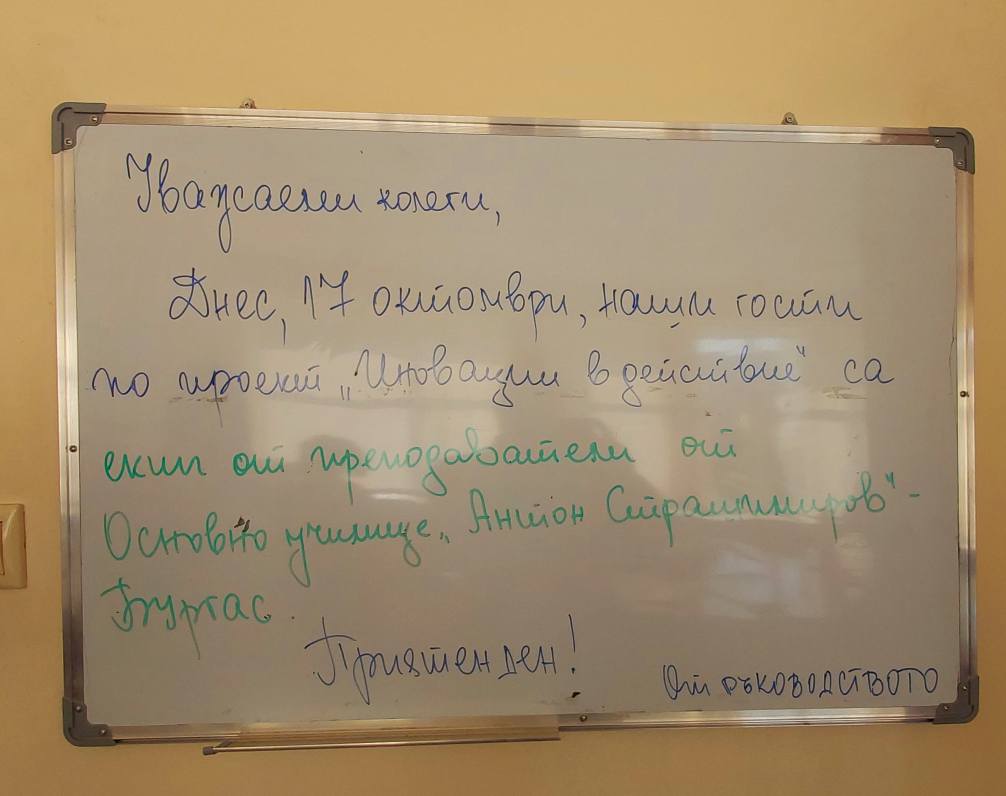 Уважаеми колеги,
Днес, 17 октомври, наши гости
по проект „Иновации в действие" са
екип от преподаватели от
Основно училище „Антон Страшимиров" -
Бургас.
Приятен ден!
От ръководството